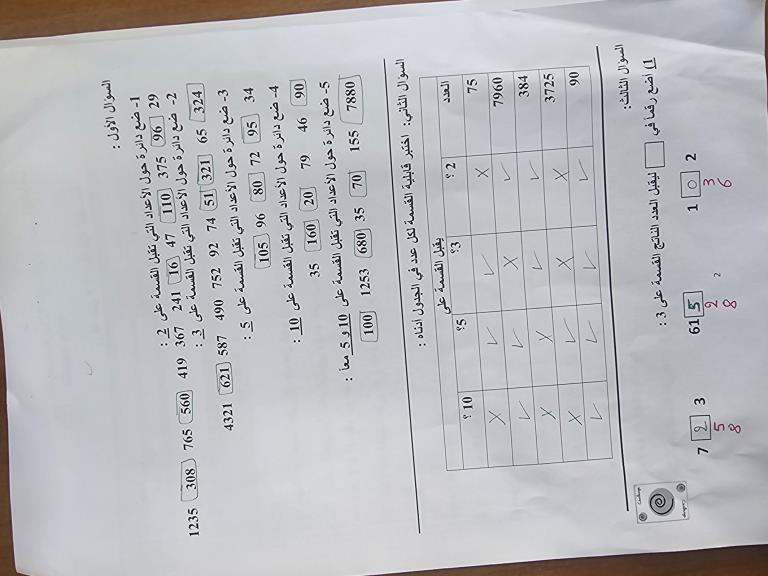 السؤال الأول :
1- ضع دائرة حول الأعداد التي تقبل القسمة على 2 :
29 96 375 110 47 16 241 367 419 560 765 308 1235
2- ضع دائرة حول الأعداد التي تقبل القسمة على 3 :
324 65 321 51 74 92 752 490 587 621 4321
3- ضع دائرة حول الأعداد التي تقبل القسمة على 5 :
34 95 72 80 96 105
4- ضع دائرة حول الأعداد التي تقبل القسمة على 10 :
90 46 79 20 160 35
5- ضع دائرة حول الأعداد التي تقبل القسمة على 10 و 5 معاً :
7880 155 70 35 680 1253 100
السؤال الثاني: اختبر قابلية القسمة لكل عدد في الجدول أدناه :
يقبل القسمة على
العدد 2 ؟ 3؟ 5؟ 10 ؟
75 × ✓ ✓ ×
7960 ✓ × ✓ ✓
384 ✓ ✓ × ×
3725 × × ✓ ×
90 ✓ ✓ ✓ ✓
السؤال الثالث:
1) أضع رقماً في □ ليقبل العدد الناتج القسمة على 3 :
7 2 3 61 5 1 0 2
5 2 2 3
8 8 6